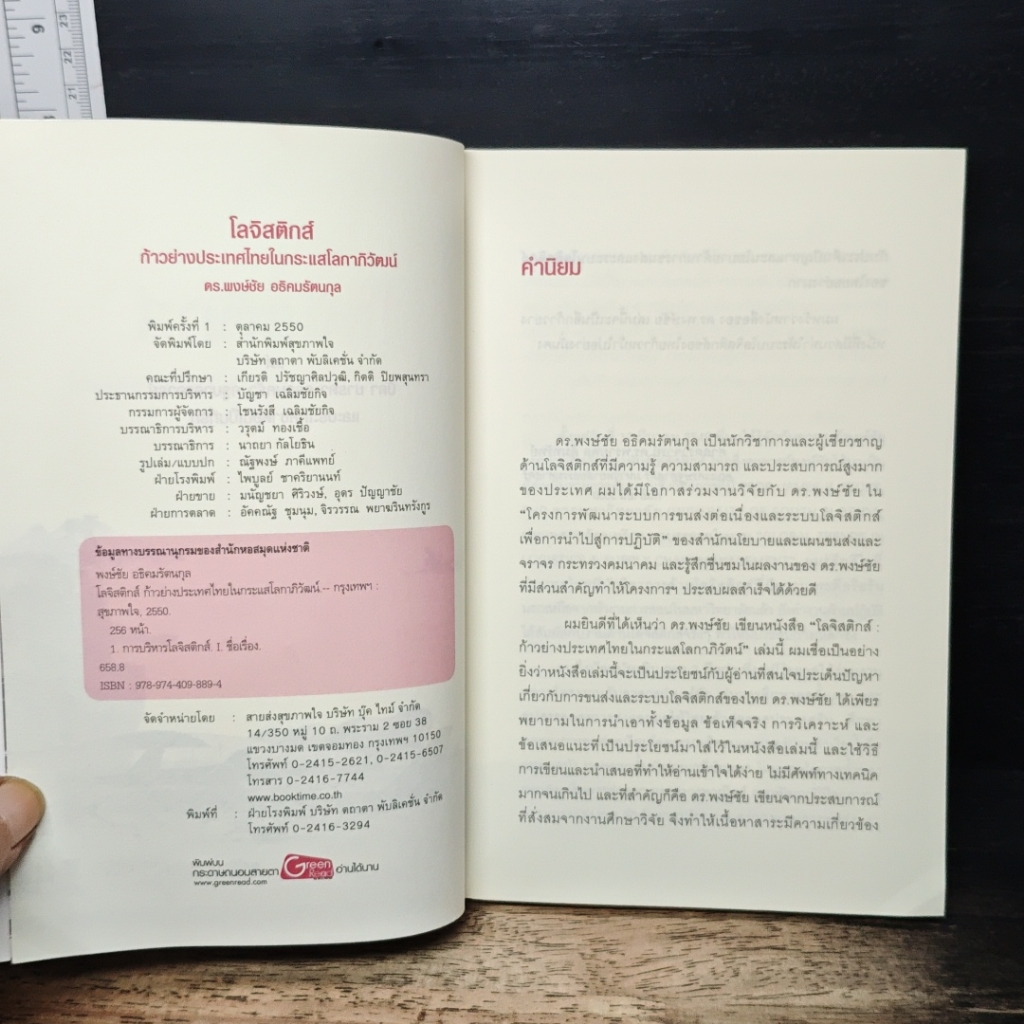 9
23
22
21
โลจิสติกส์
ก้าวย่างประเทศไทยในกระแสโลกาภิวัฒน์
ดร.พงษ์ชัย อธิคมรัตนกุล
พิมพ์ครั้งที่ 1 : ตุลาคม 2550
จัดพิมพ์โดย : สำนักพิมพ์สุขภาพใจ
บริษัท ตถาตา พับลิเคชั่น จำกัด
คณะที่ปรึกษา : เกียรติ ปรัชญาศิลปวุฒิ, กิตติ ปิยพสุนทรา
ประธานกรรมการบริหาร : บัญชา เฉลิมชัยกิจ
กรรมการผู้จัดการ : โชนรังสี เฉลิมชัยกิจ
บรรณาธิการบริหาร : วรุตม์ ทองเชื้อ
บรรณาธิการ : นาถยา กัลโยธิน
รูปเล่ม/แบบปก : ณัฐพงษ์ ภาคีแพทย์
ฝ่ายโรงพิมพ์ : ไพบูลย์ ชาคริยานนท์
ฝ่ายขาย : มนัญชยา ศิริวงษ์, อุดร ปัญญาชัย
ฝ่ายการตลาด : อัคคณัฐ ชุมนุม, จิรวรรณ พยาฆรินทรังกูร
ข้อมูลทางบรรณานุกรมของสำนักหอสมุดแห่งชาติ
พงษ์ชัย อธิคมรัตนกุล
โลจิสติกส์ ก้าวย่างประเทศไทยในกระแสโลกาภิวัฒน์.-- กรุงเทพฯ :
สุขภาพใจ, 2550.
256 หน้า.
1. การบริหารโลจิสติกส์. I. ชื่อเรื่อง.
658.8
ISBN : 978-974-409-889-4
จัดจำหน่ายโดย : สายส่งสุขภาพใจ บริษัท บุ๊ค ไทม์ จำกัด
14/350 หมู่ 10 ถ. พระราม 2 ซอย 38
แขวงบางมด เขตจอมทอง กรุงเทพฯ 10150
โทรศัพท์ 0-2415-2621, 0-2415-6507
โทรสาร 0-2416-7744
www.booktime.co.th
พิมพ์ที่ : ฝ่ายโรงพิมพ์ บริษัท ตถาตา พับลิเคชั่น จำกัด
โทรศัพท์ 0-2416-3294
พิมพ์บน
กระดาษถนอมสายตา Green Read อ่านได้นาน
www.greenread.com
คำนิยม
ดร.พงษ์ชัย อธิคมรัตนกุล เป็นนักวิชาการและผู้เชี่ยวชาญ
ด้านโลจิสติกส์ที่มีความรู้ ความสามารถ และประสบการณ์สูงมาก
ของประเทศ ผมได้มีโอกาสร่วมงานวิจัยกับ ดร.พงษ์ชัย ใน
“โครงการพัฒนาระบบการขนส่งต่อเนื่องและระบบโลจิสติกส์
เพื่อการนำไปสู่การปฏิบัติ” ของสำนักนโยบายและแผนขนส่งและ
จราจร กระทรวงคมนาคม และรู้สึกชื่นชมในผลงานของ ดร.พงษ์ชัย
ที่มีส่วนสำคัญทำให้โครงการฯ ประสบผลสำเร็จได้ด้วยดี
ผมยินดีที่ได้เห็นว่า ดร.พงษ์ชัย เขียนหนังสือ “โลจิสติกส์ :
ก้าวย่างประเทศไทยในกระแสโลกาภิวัตน์” เล่มนี้ ผมเชื่อเป็นอย่าง
ยิ่งว่าหนังสือเล่มนี้จะเป็นประโยชน์กับผู้อ่านที่สนใจประเด็นปัญหา
เกี่ยวกับการขนส่งและระบบโลจิสติกส์ของไทย ดร.พงษ์ชัย ได้เพียร
พยายามในการนำเอาทั้งข้อมูล ข้อเท็จจริง การวิเคราะห์ และ
ข้อเสนอแนะที่เป็นประโยชน์มาใส่ไว้ในหนังสือเล่มนี้ และใช้วิธี
การเขียนและนำเสนอที่ทำให้อ่านเข้าใจได้ง่าย ไม่มีศัพท์ทางเทคนิค
มากจนเกินไป และที่สำคัญก็คือ ดร.พงษ์ชัย เขียนจากประสบการณ์
ที่สั่งสมจากงานศึกษาวิจัย จึงทำให้เนื้อหาสาระมีความเกี่ยวข้อง